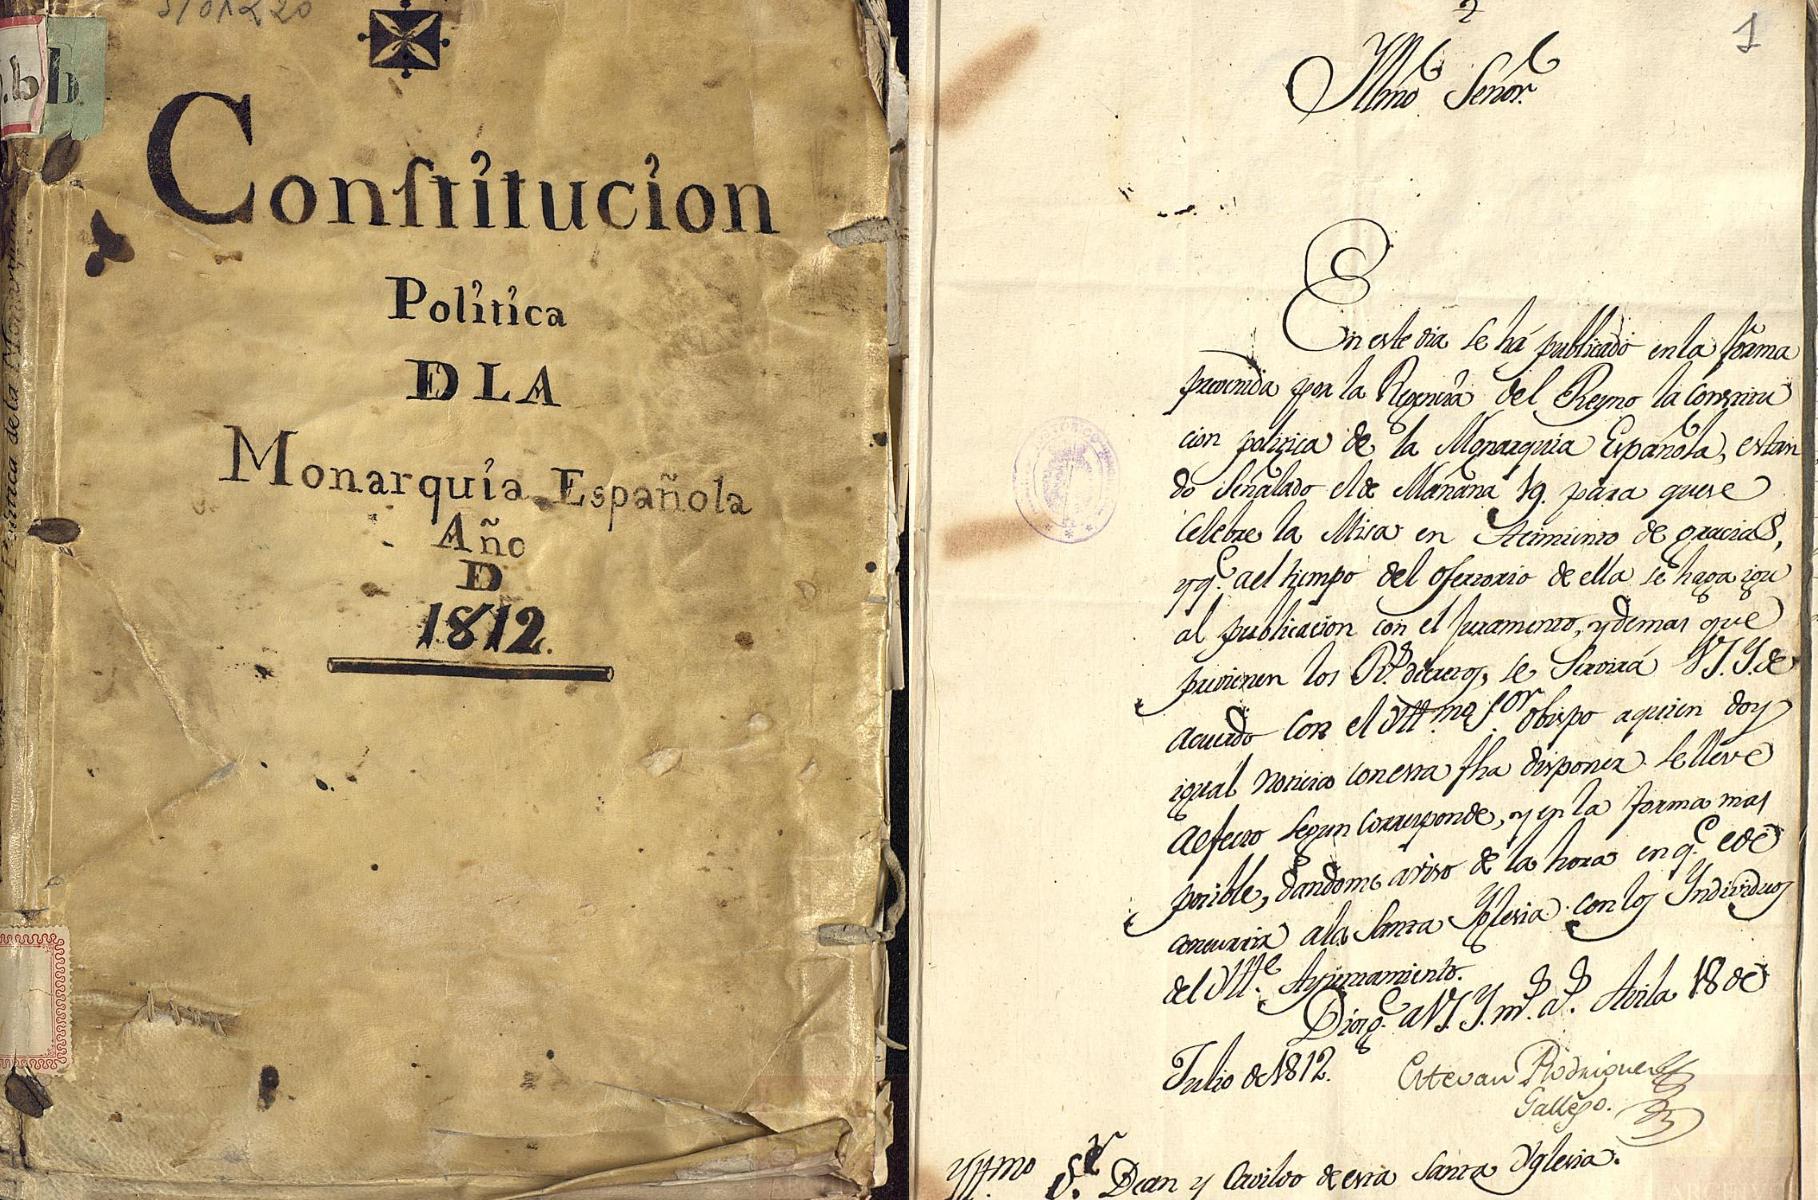 S/01220
b
Constitucion
Política
D LA
Monarquía Española
Año
D
1812.
Politica de la Monarquia
2
1
Yllmo Señor.
En este dia se há publicado en la forma
prevenida por la Regencia del Reyno la Constitu
cion politica de la Monarquia Española, estan
do señalado el de Mañana 19. para que se
celebre la Misa en Acimiento de gracias,
y q.e al tiempo del ofertorio de ella se haga igu
al publicacion con el juramento, y demas que
previenen los R.s decretos, se servirá V.S.Y. de
acuerdo con el Yll.mo S.or Obispo a quien doy
igual noticia con esta fha disponer se lleve
a efecto segun corresponde, y en la forma mas
posible, dandome aviso de la hora en q.e
concurrir a la Santa Yglesia con los Yndividuos
del Yll.e Ayuntamiento.
Dios g.e a V.S.Y. m.s a.s Avila 18 de
Julio de 1812.
Estevan Rodriguez
Gallego.
Yll.mo S.r Dean y Cavildo de esta Santa Yglesia.